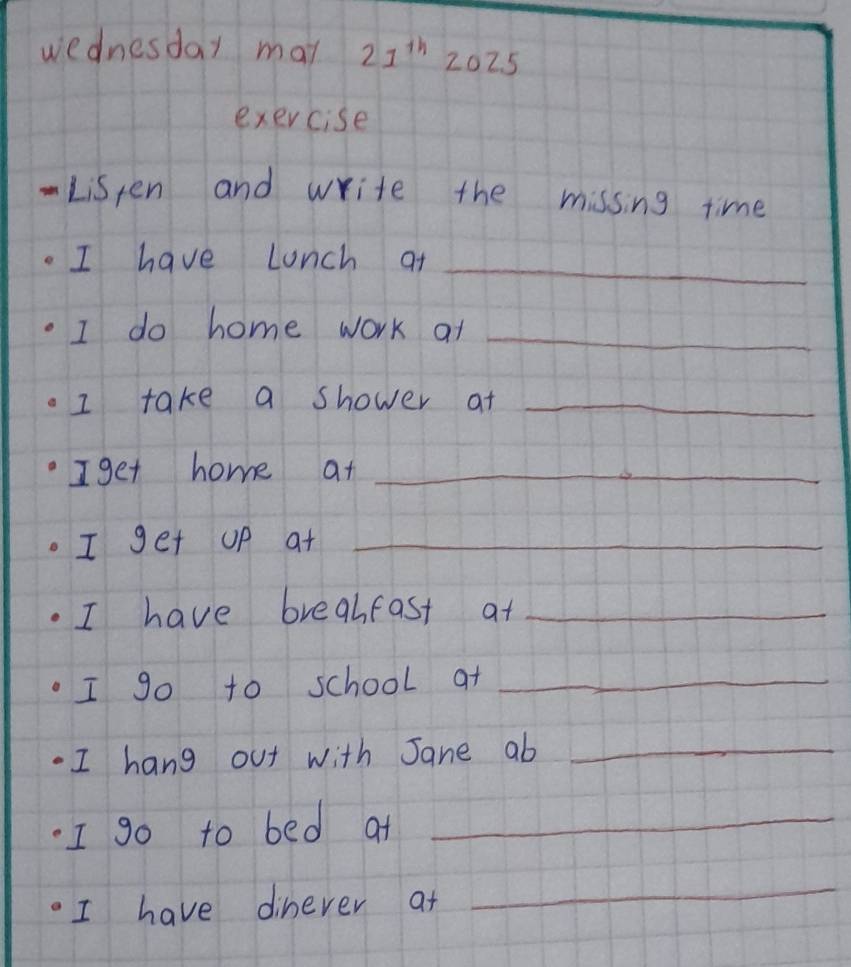 wednesday may 21th 2025
exercise
- Listen and write the missing time
• I have Lunch at
• I do home work at
• I take a shower at
• I get home at
• I get up at
• I have breahfast at
• I go to school at
• I hang out with Jane ab
• I go to bed at
• I have dinever at